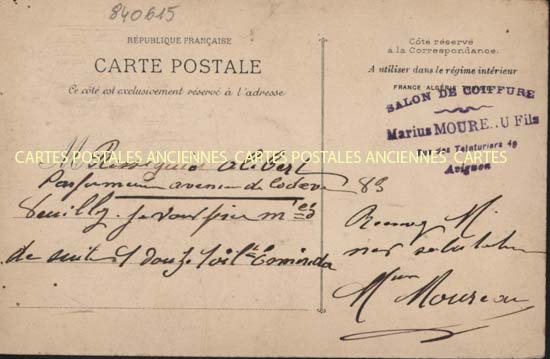 840615
RÉPUBLIQUE FRANÇAISE
CARTE POSTALE
Ce côté est exclusivement réservé à l'adresse
Côté réservé
à la Correspondance.
A utiliser dans le régime intérieur
FRANCE ALGÉRIE
SALON DE COIFFURE
Marius MOURE..U Fils
Rue des Teinturiers 49
Avignon
CARTES POSTALES ANCIENNES CARTES POSTALES ANCIENNES CARTES POSTALES ANCIENNES
Alibert
Parfumeur avenue de Lodève 83
Veuillez je vous prie m'
de suite 1 douze
Recevez M.
mes
Moureau